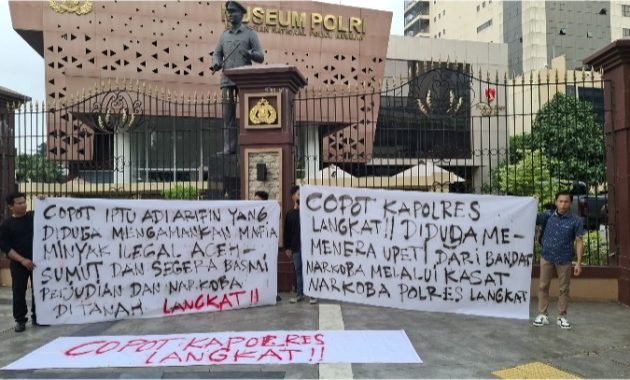 MUSEUM POLRI
COPOT IPTU ADI ARIFIN YANG
DIDUGA MENGAMANKAN MAFIA
MINYAK ILEGAL ACEH-
SUMUT DAN SEGERA BASMI
PERJUDIAN DAN NARKOBA
DI TANAH LANGKAT!!
COPOT KAPOLRES
LANGKAT!! DIDUGA ME-
MENERA UPETI DARI BANDAR
NARKOBA MELALUI KASAT
NARKOBA POLRES LANGKAT
COPOT KAPOLRES
LANGKAT!!